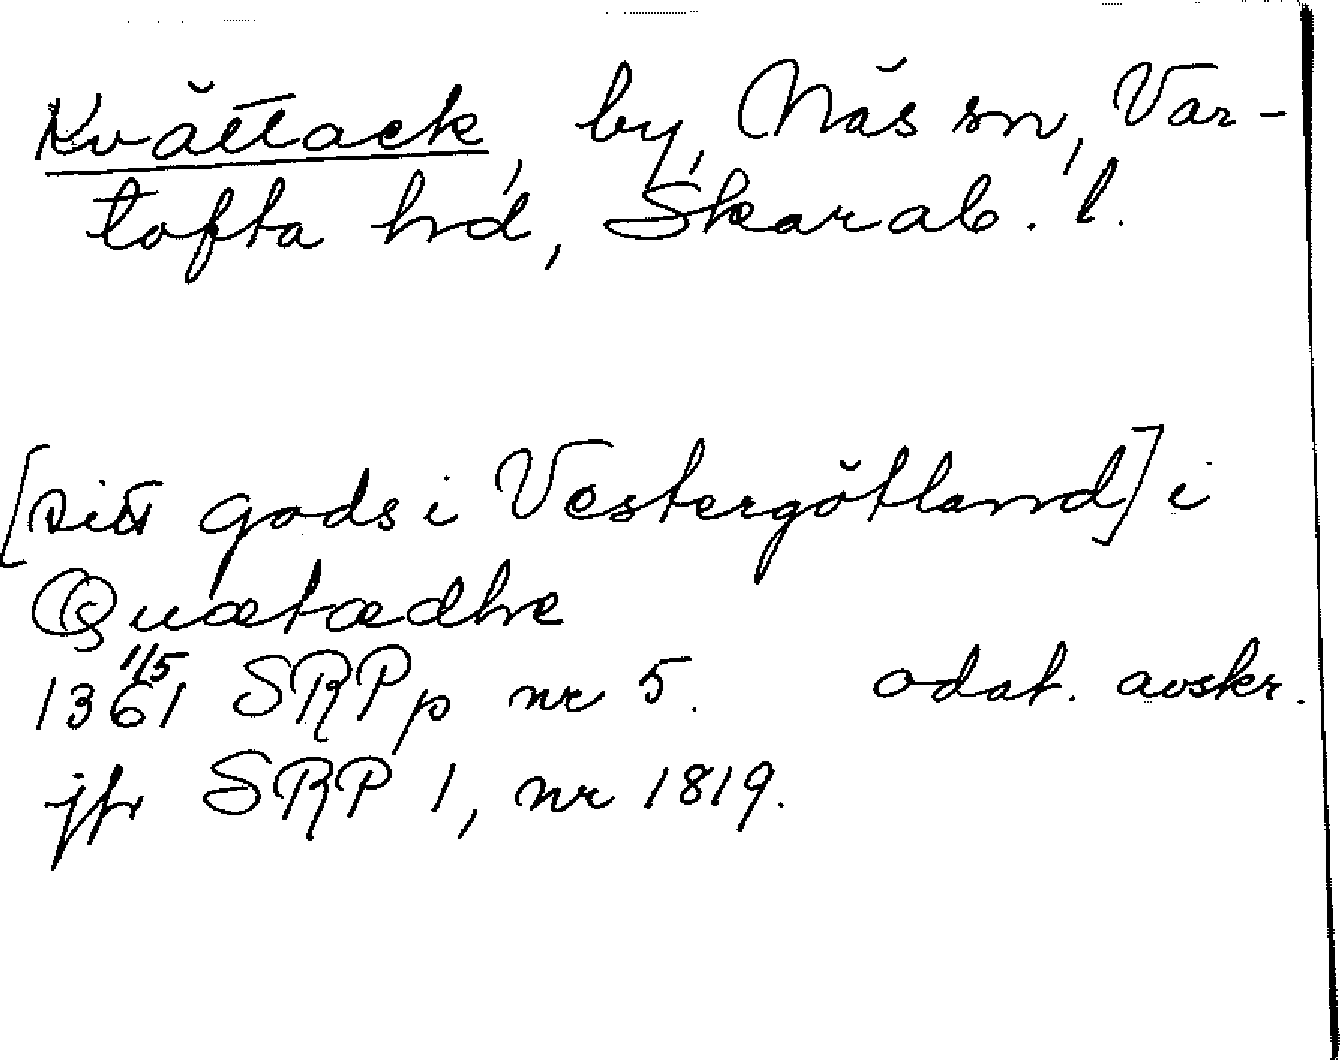 Kvättack, by, Näs sn, Var-
tofta hd, Skarab. l.
[sitt gods i Vestergötland] i
Quætædhe
1361 1/5 SRPp nr 5. odat. avskr.
jfr SRP 1, nr 1819.